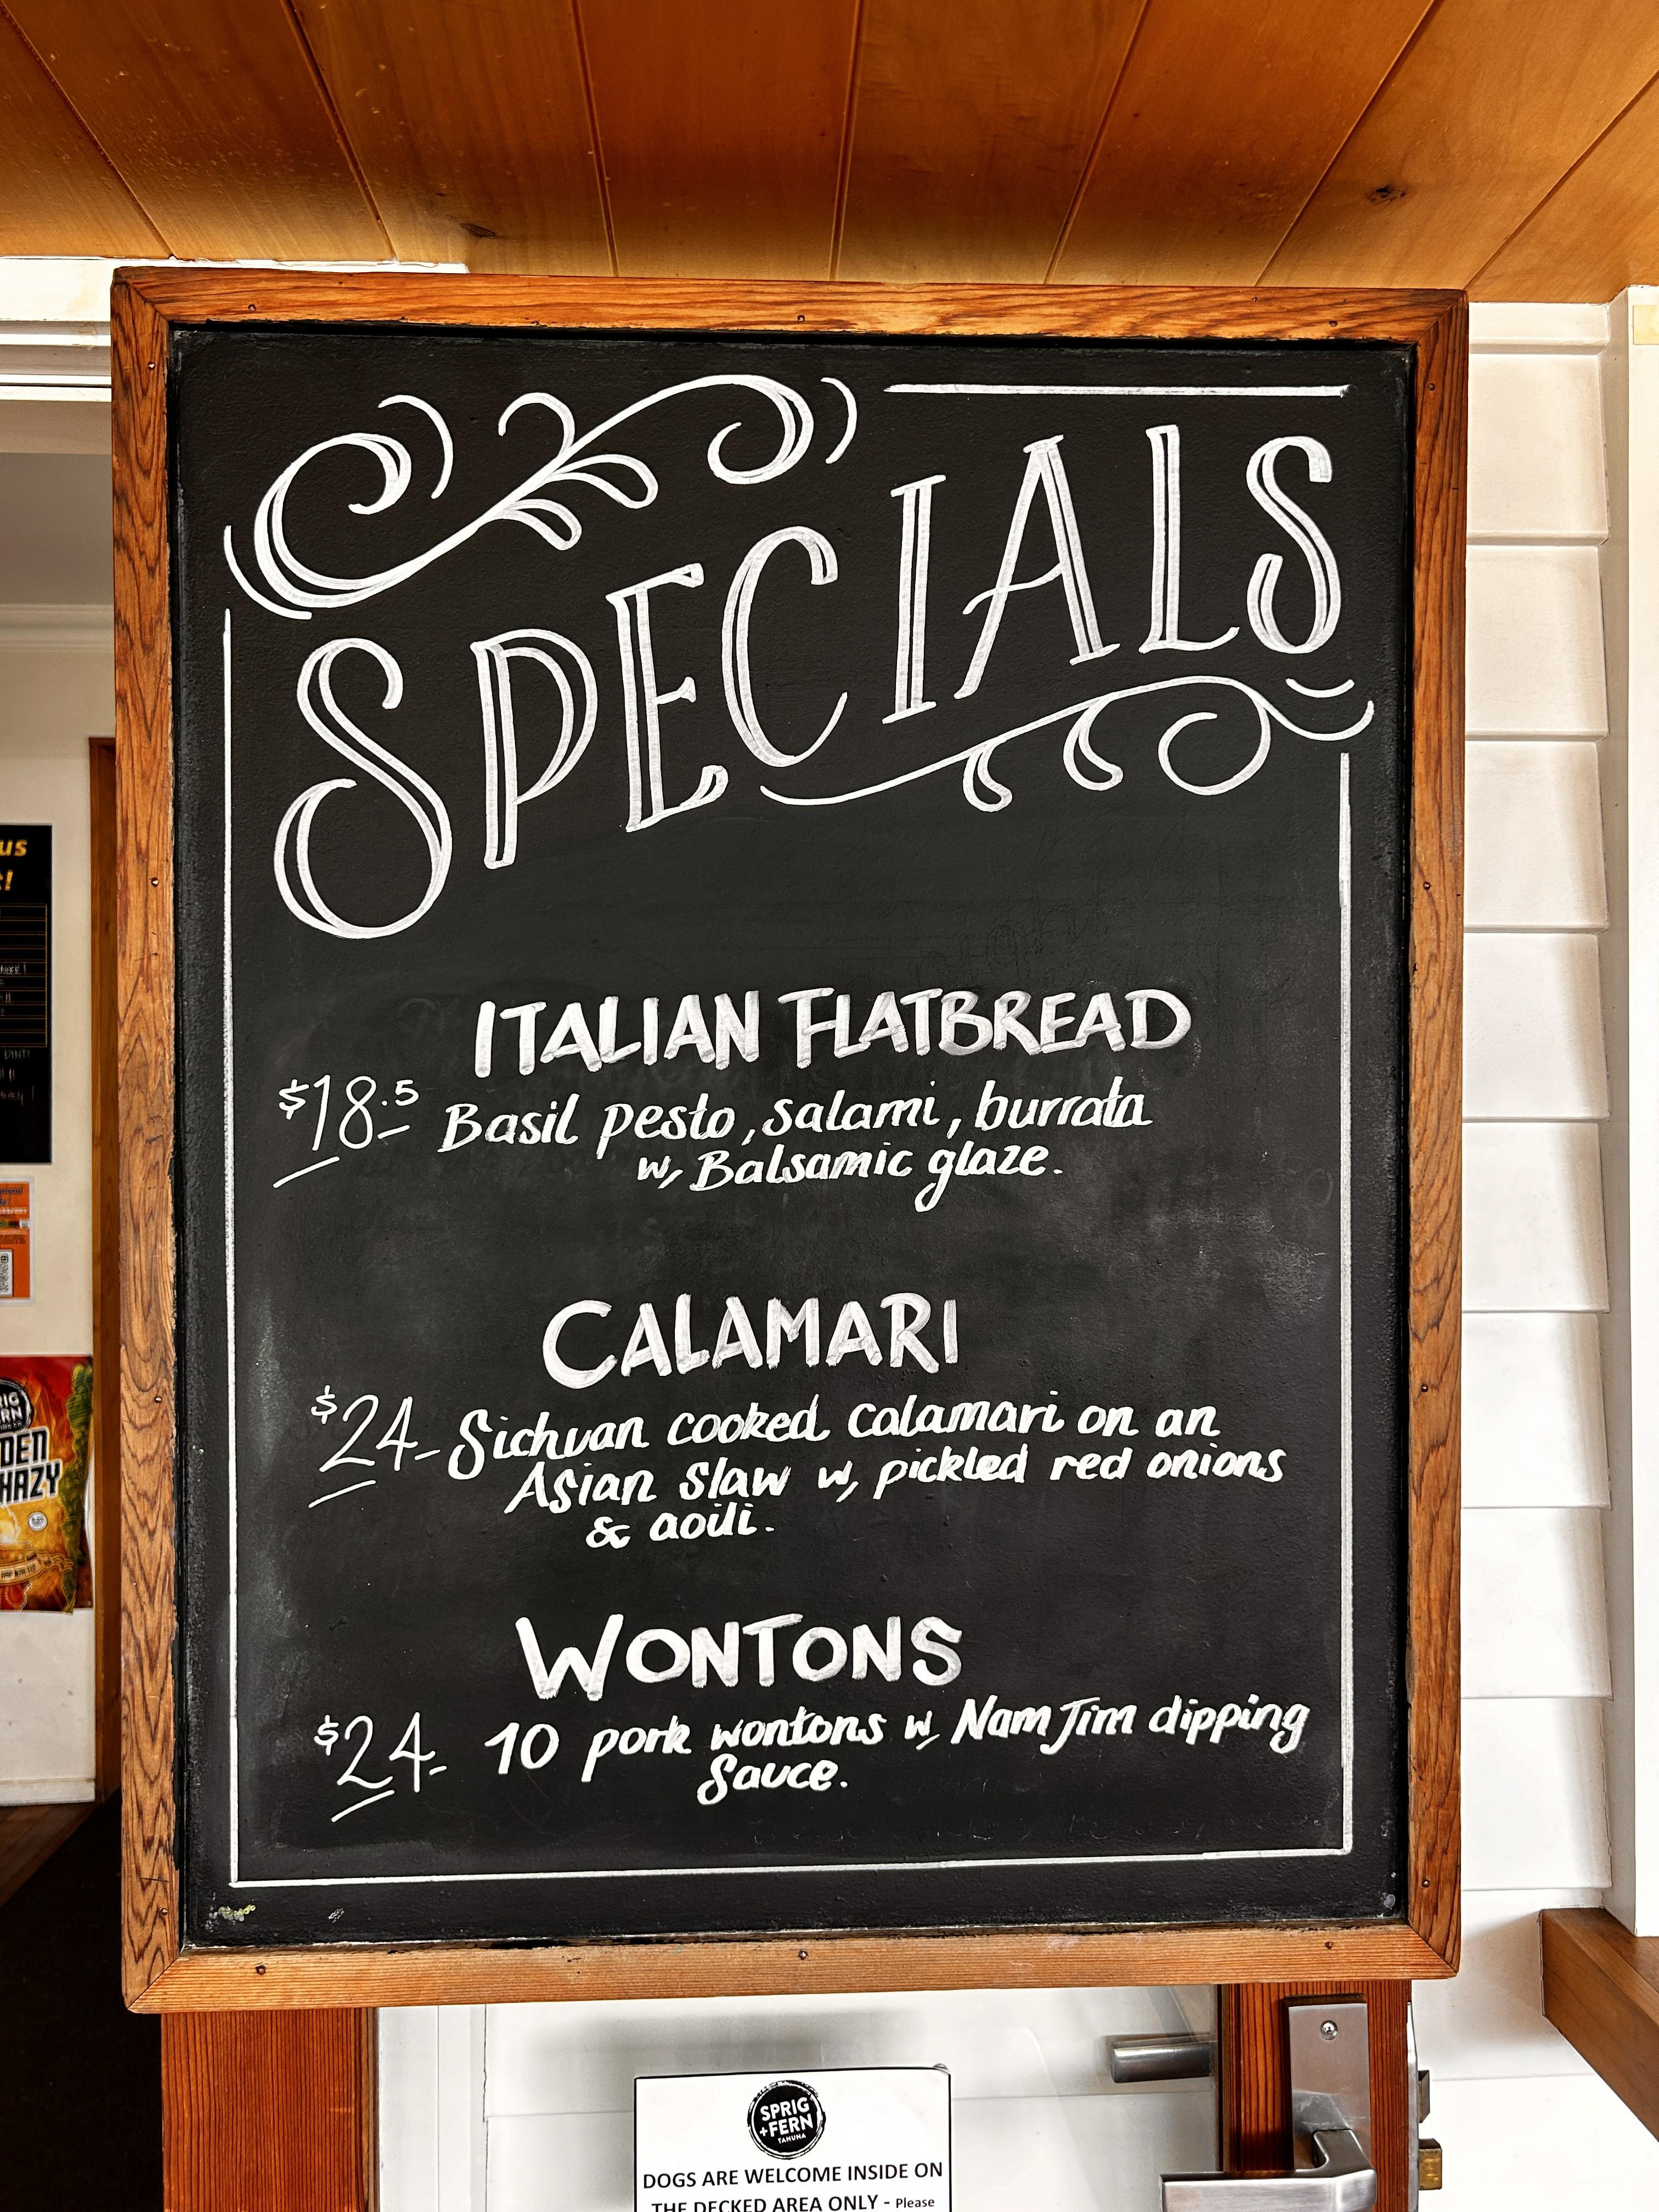 SPECIALS
ITALIAN FLATBREAD
$18.5 Basil pesto, salami, burrata
w, Balsamic glaze.
CALAMARI
$24- Sichuan cooked calamari on an
Asian Slaw w, pickled red onions
& aoili.
WONTONS
$24- 10 pork wontons w, Nam Jim dipping
Sauce.
SPRIG
+FERN
TAHUNA
DOGS ARE WELCOME INSIDE ON
THE DECKED AREA ONLY - Please
us
!
RIG
ERN
DEN
HAZY